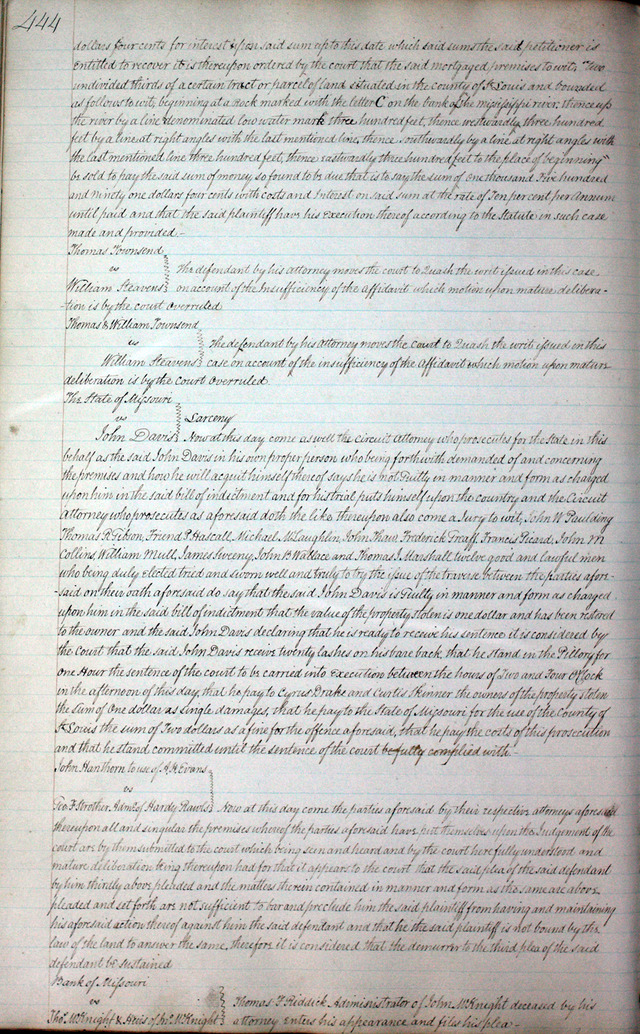 444
dollars four cents for interest upon said sum up to this date which said sums the said petitioner is
entitled to recover it is thereupon ordered by the court that the said mortgaged premises to wit, "Two
undivided thirds of a certain tract or parcel of land situated in the county of St Louis and bounded
as follows to wit, beginning at a Rock marked with the letter C on the bank of the Missippi river; thence up
the river by a line denominated low water mark three hundred feet, thence westwardly three hundred
feet by a line at right angles with the last mentioned line, thence southwardly by a line at right angles with
the last mentioned line three hundred feet, thence eastwardly three hundred feet to the place of beginning"
be sold to pay the said sum of money so found to be due that is to say the sum of One thousand Five hundred
and ninety one dollars four cents with costs and Interest on said sum at the rate of Ten percent per Annum
until paid and that the said plaintiff have his execution thereof according to the Statute in such case
made and provided.—
Thomas Townsend
vs
William Steavens the defendant by his attorney moves the court to Quash the writ issued in this case
on account of the Insufficiency of the Affidavit which motion upon mature delibera-
-tion is by the court overruled
Thomas & William Townsend
vs the defendant by his Attorney moves the Court to Quash the writ issued in this
William Steavens case on account of the insufficiency of the Affidavit which motion upon mature
deliberation is by the Court overruled
The State of Missouri
vs Larceny
John Davis Now at this day come as well the Circuit Attorney who prosecutes for the State in this
behalf as the said John Davis in his own proper person who being forthwith demanded of and concerning
the premises and how he will acquit himself thereof says he is not Guilty in manner and form as charged
upon him in the said bill of indictment and for his trial puts himself upon the country and the Circuit
Attorney who prosecutes as aforesaid doth the like thereupon also come a Jury to wit, John W Paulding
Thomas R Gibson, Friend P. Hascall, Michael McLaughlin, John Thaw Frederick Graff, Francis Picard, John M
Collins, William Mull, James Sweeny, John B Wallace and Thomas J. Marshall twelve good and lawful men
who being duly elected tried and sworn well and truly to try the issue of the traverse between the parties afore-
-said on their oath aforesaid do say that the said John Davis is Guilty in manner and form as charged
upon him in the said bill of indictment that the value of the property stolen is one dollar and has been restored
to the owner and the said John Davis declaring that he is ready to receive his sentence it is considered by
the Court that the said John Davis receive twenty lashes on his bare back that he stand in the Pillory for
one Hour the sentence of the court to be carried into Execution between the hours of Two and Four O'Clock
in the afternoon of this day, that he pay to Cyrus Drake and Curtis Skinner the owners of the property stolen
the sum of One dollar as single damages, that he pay to the State of Missouri for the use of the County of
St Louis the sum of Two dollars as a fine for the offence aforesaid, that he pay the costs of this prosecution
and that he stand committed until the sentence of the court be fully complied with—
John Hanthorn to use of A. H. Evans
vs
Geo F Strother Admr. of Hardy Rawls Now at this day come the parties aforesaid by their respective attorneys aforesaid
thereupon all and singular the premises whereof the parties aforesaid have put themselves upon the Judgement of the
court are by them submitted to the court which being seen and heard and by the court here fully understood and
mature deliberation being thereupon had for that it appears to the court that the said plea of the said defendant
by him thirdly above pleaded and the matters therein contained in manner and form as the same are above
pleaded and set forth are not sufficient to bar and preclude him the said plaintiff from having and maintaining
his aforesaid action thereof against him the said defendant and that he the said plaintiff is not bound by the
law of the land to answer the same, therefore it is considered that the demurrer to the third plea of the said
defendant be sustained
Bank of Missouri
vs Thomas F Riddick Administrator of John McKnight deceased by his
Thos. McKnight & Heirs of Jno. McKnight attorney enters his appearance and files his plea—